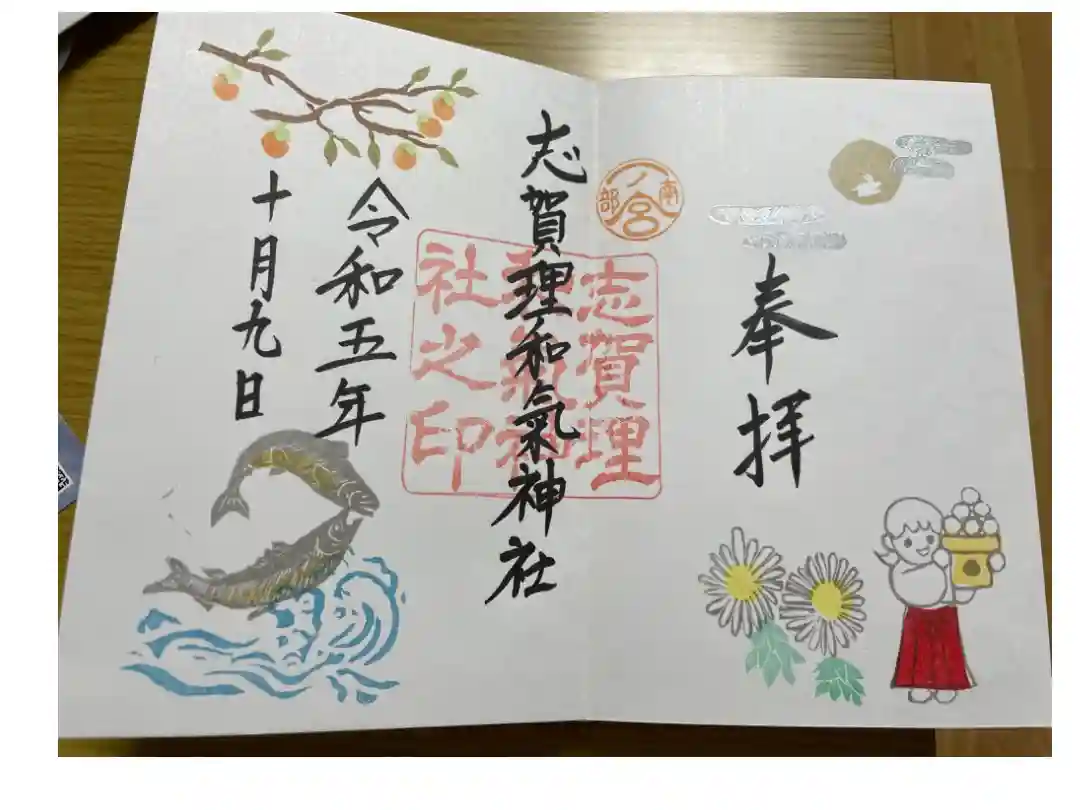 奉拝
南部
一ノ宮
志賀理和氣神社
志賀理
和氣神
社之印
令和五年
十月九日